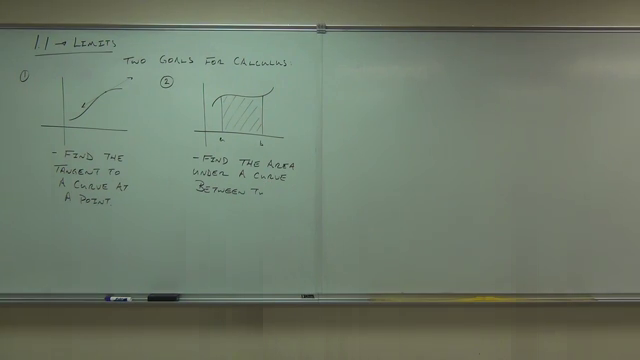 1.1 → LIMITS
TWO GOALS FOR CALCULUS.
①
②
a b
- FIND THE
TANGENT TO
A CURVE AT
A POINT.
- FIND THE AREA
UNDER A CURVE
BETWEEN